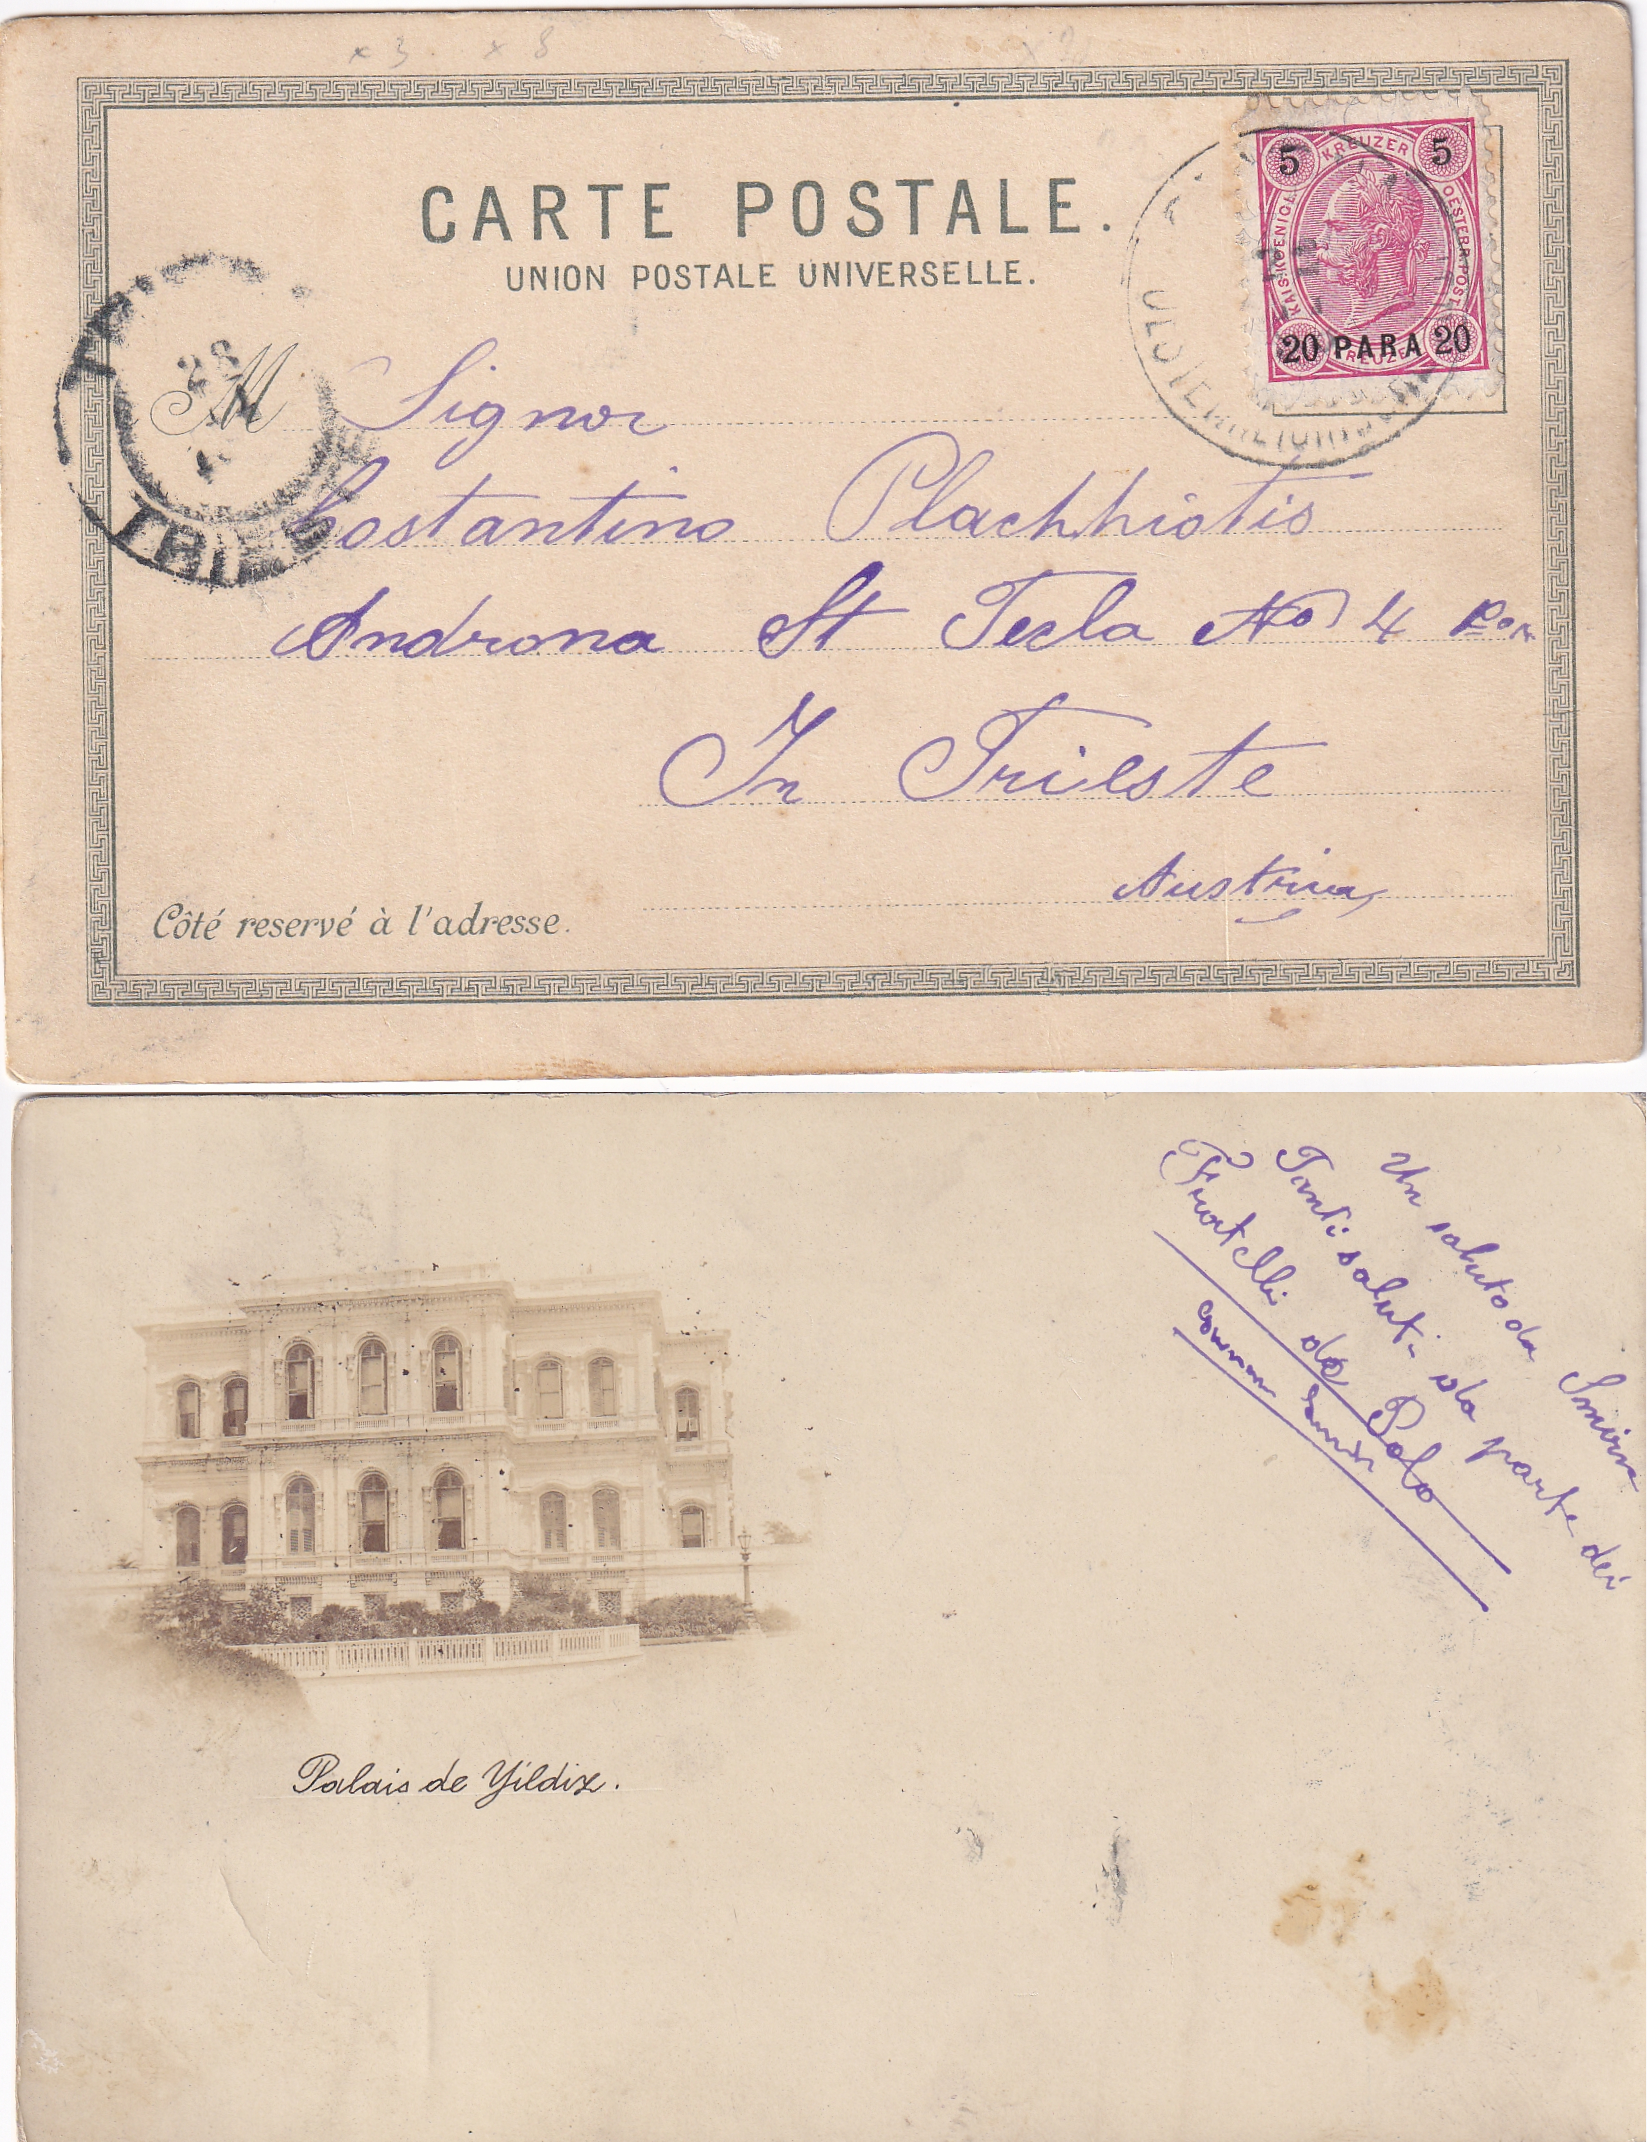 CARTE POSTALE.
UNION POSTALE UNIVERSELLE.
5 KREUZER 5
KAIS. KOENIGL. OESTERR. POST
20 PARA 20
KREUZER
28
TRIEST
M Signor
Costantino Plachhiotis
Androna St Tecla No 4
In Trieste
Austria
Côté reservé à l'adresse.
Un saluto da Smirne
Tanti saluti da parte dei
Fratelli de Polo
Palais de Yildiz.